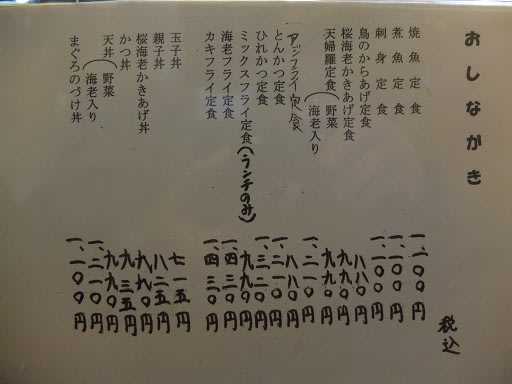 おしながき
焼魚定食 一、一〇〇円
煮魚定食 一、一〇〇円
刺身定食 一、一〇〇円
鳥のからあげ定食 八八〇円
桜海老かきあげ定食 九九〇円
天婦羅定食 野菜 九九〇円
海老入り 一、二一〇円
アジフライ定食 八八〇円
とんかつ定食 一、二一〇円
ひれかつ定食 一、三二〇円
ミックスフライ定食(ランチのみ) 九九〇円
海老フライ定食 一、四三〇円
カキフライ定食 一、四三〇円
玉子丼 七一五円
親子丼 八二五円
桜海老かきあげ丼 九九〇円
かつ丼 九三五円
天丼 野菜 九九〇円
海老入り 一、二一〇円
まぐろのづけ丼 一、一〇〇円
税込